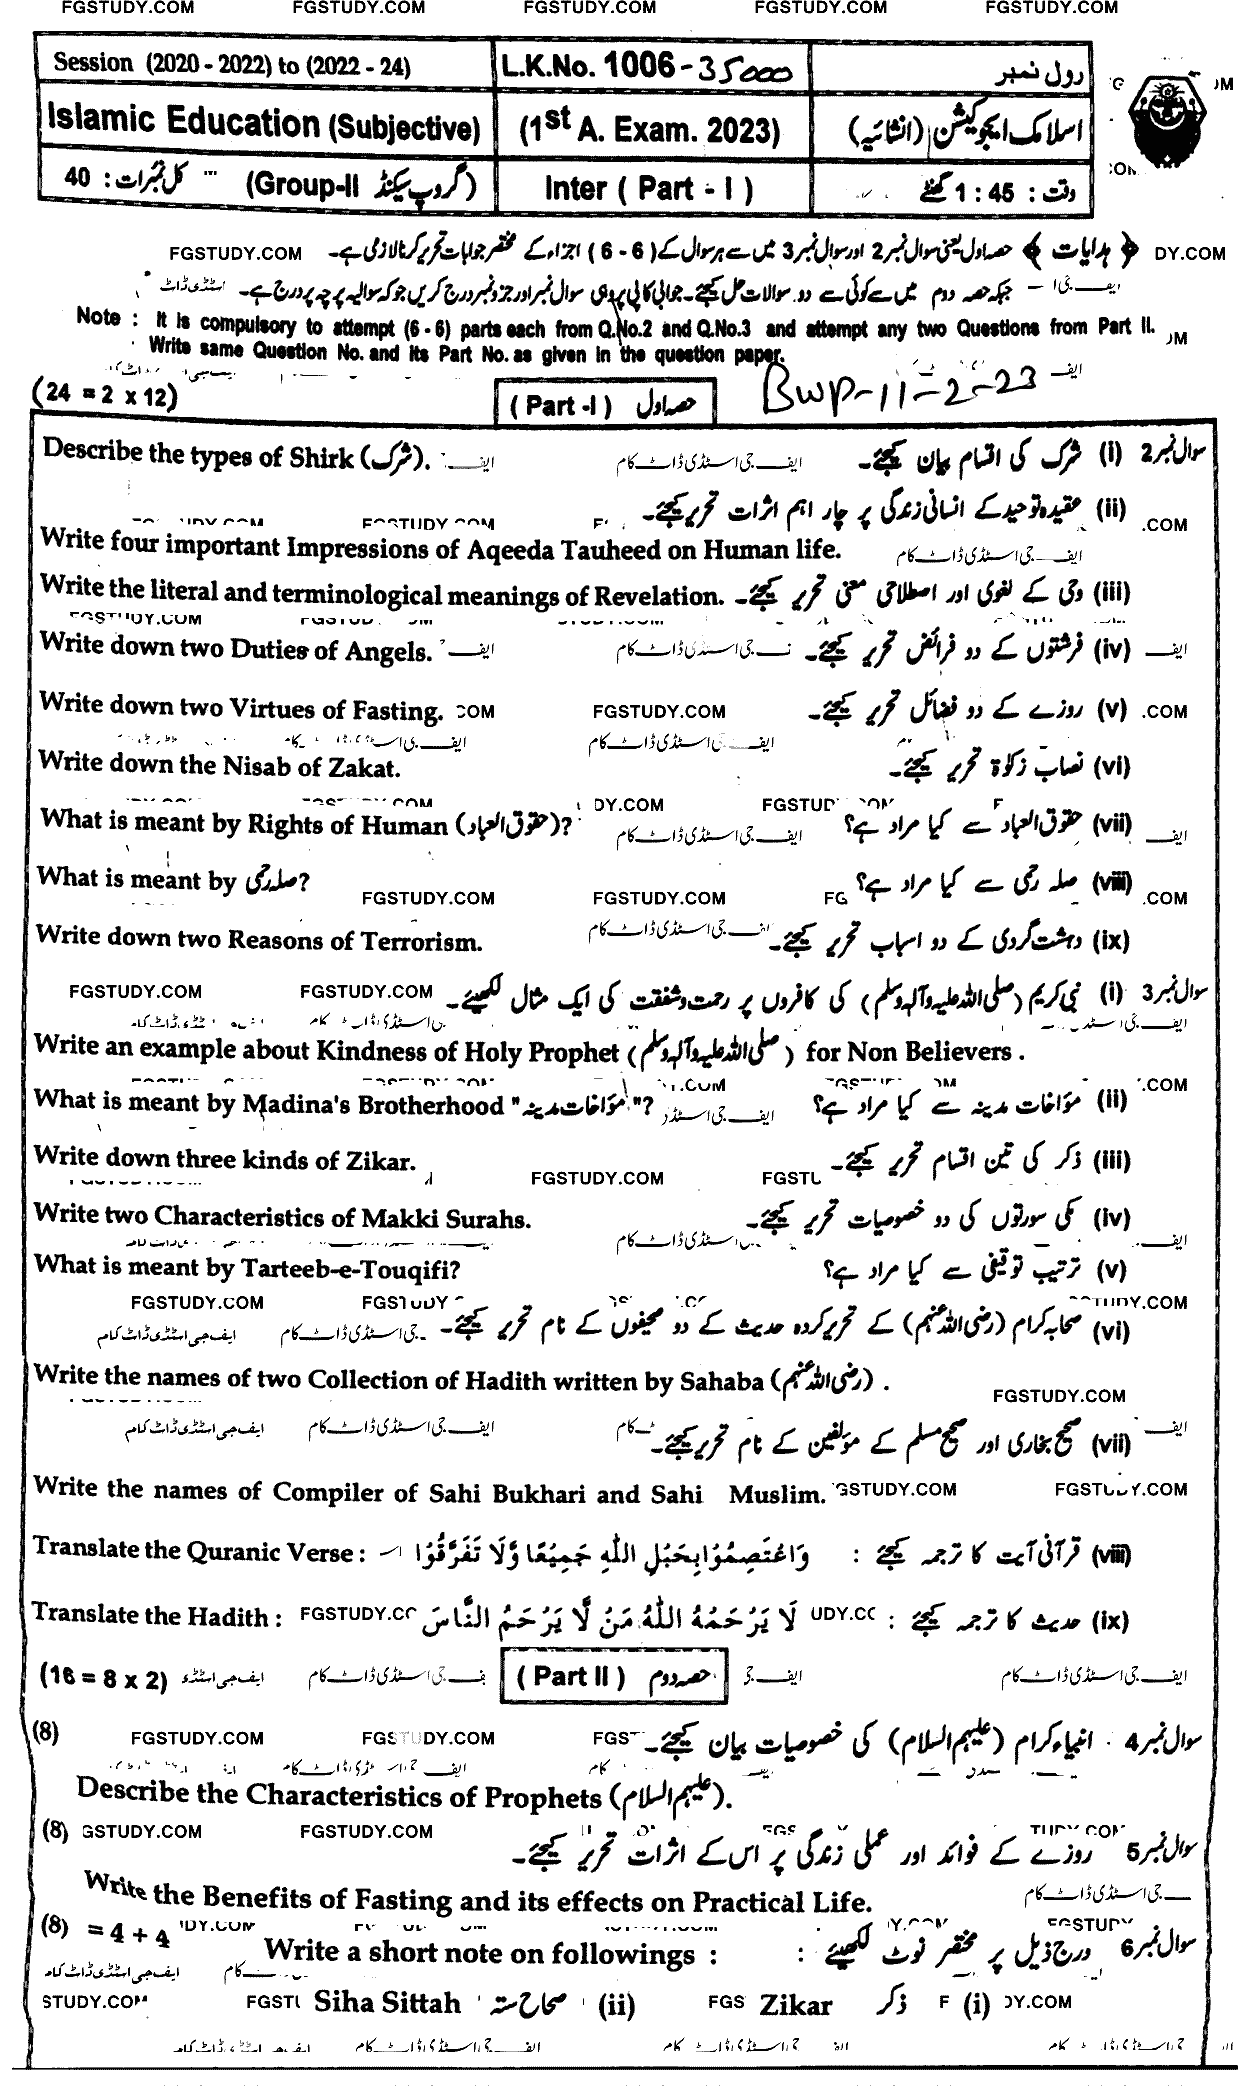 FGSTUDY.COM FGSTUDY.COM FGSTUDY.COM FGSTUDY.COM FGSTUDY.COM
Session (2020 - 2022) to (2022 - 24) L.K.No. 1006-35000 رول نمبر
Islamic Education (Subjective) (1st A. Exam. 2023) اسلامک ایجوکیشن (انشائیہ)
(Group-II گروپ سیکنڈ) کل نمبرات : 40 Inter ( Part - I ) وقت : 1 : 45 گھنٹے
FGSTUDY.COM ﴿ ہدایات ﴾ حصہ اول یعنی سوال نمبر 2 اور سوال نمبر 3 میں سے ہر سوال کے (6 - 6) اجزاء کے مختصر جوابات تحریر کرنا لازمی ہے۔
جبکہ حصہ دوم میں سے کوئی سے دو سوالات حل کیجئے۔ جوابی کاپی پر وہی سوال نمبر اور جزو نمبر درج کریں جو کہ سوالیہ پرچہ پر درج ہے۔
Note : It is compulsory to attempt (6 - 6) parts each from Q.No.2 and Q.No.3 and attempt any two Questions from Part II.
Write same Question No. and its Part No. as given in the question paper.
(24 = 2 x 12) ( Part -I ) حصہ اول BWP-11-2-23
سوال نمبر 2 (i) شرک کی اقسام بیان کیجئے۔ Describe the types of Shirk (شرک).
(ii) عقیدہ توحید کے انسانی زندگی پر چار اہم اثرات تحریر کیجئے۔
Write four important Impressions of Aqeeda Tauheed on Human life.
(iii) وحی کے لغوی اور اصطلاحی معنی تحریر کیجئے۔ Write the literal and terminological meanings of Revelation.
(iv) فرشتوں کے دو فرائض تحریر کیجئے۔ Write down two Duties of Angels.
(v) روزے کے دو فضائل تحریر کیجئے۔ FGSTUDY.COM Write down two Virtues of Fasting.
(vi) نصاب زکوٰۃ تحریر کیجئے۔ Write down the Nisab of Zakat.
(vii) حقوق العباد سے کیا مراد ہے؟ What is meant by Rights of Human (حقوق العباد)?
(viii) صلہ رحمی سے کیا مراد ہے؟ What is meant by صلہ رحمی?
FGSTUDY.COM FGSTUDY.COM
(ix) دہشت گردی کے دو اسباب تحریر کیجئے۔ Write down two Reasons of Terrorism.
سوال نمبر 3 (i) نبی کریم (صلی اللہ علیہ وآلہ وسلم) کی کافروں پر رحمت و شفقت کی ایک مثال لکھیئے۔ FGSTUDY.COM FGSTUDY.COM
Write an example about Kindness of Holy Prophet (صلی اللہ علیہ وآلہ وسلم) for Non Believers .
(ii) مؤاخات مدینہ سے کیا مراد ہے؟ What is meant by Madina's Brotherhood "مؤاخات مدینہ"?
(iii) ذکر کی تین اقسام تحریر کیجئے۔ Write down three kinds of Zikar.
FGSTUDY.COM
(iv) مکی سورتوں کی دو خصوصیات تحریر کیجئے۔ Write two Characteristics of Makki Surahs.
(v) ترتیب توقیفی سے کیا مراد ہے؟ What is meant by Tarteeb-e-Touqifi?
FGSTUDY.COM
(vi) صحابہ کرام (رضی اللہ عنہم) کے تحریر کردہ حدیث کے دو صحیفوں کے نام تحریر کیجئے۔
Write the names of two Collection of Hadith written by Sahaba (رضی اللہ عنہم) .
FGSTUDY.COM
(vii) صحیح بخاری اور صحیح مسلم کے مؤلفین کے نام تحریر کیجئے۔
Write the names of Compiler of Sahi Bukhari and Sahi Muslim.
(viii) قرآنی آیت کا ترجمہ کیجئے : وَاعْتَصِمُوْا بِحَبْلِ اللّٰهِ جَمِيْعًا وَّلَا تَفَرَّقُوْا Translate the Quranic Verse :
(ix) حدیث کا ترجمہ کیجئے : لَا يَرْحَمُهُ اللّٰهُ مَنْ لَّا يَرْحَمُ النَّاسَ Translate the Hadith :
(16 = 8 x 2) ( Part II ) حصہ دوم
(8) FGSTUDY.COM FGSTUDY.COM سوال نمبر 4 انبیاء کرام (علیہم السلام) کی خصوصیات بیان کیجئے۔
Describe the Characteristics of Prophets (علیہم السلام).
(8) GSTUDY.COM FGSTUDY.COM سوال نمبر 5 روزے کے فوائد اور عملی زندگی پر اس کے اثرات تحریر کیجئے۔
Write the Benefits of Fasting and its effects on Practical Life.
(8) = 4 + 4 سوال نمبر 6 درج ذیل پر مختصر نوٹ لکھیئے : Write a short note on followings :
(i) ذکر Zikar (ii) صحاح ستہ Siha Sittah